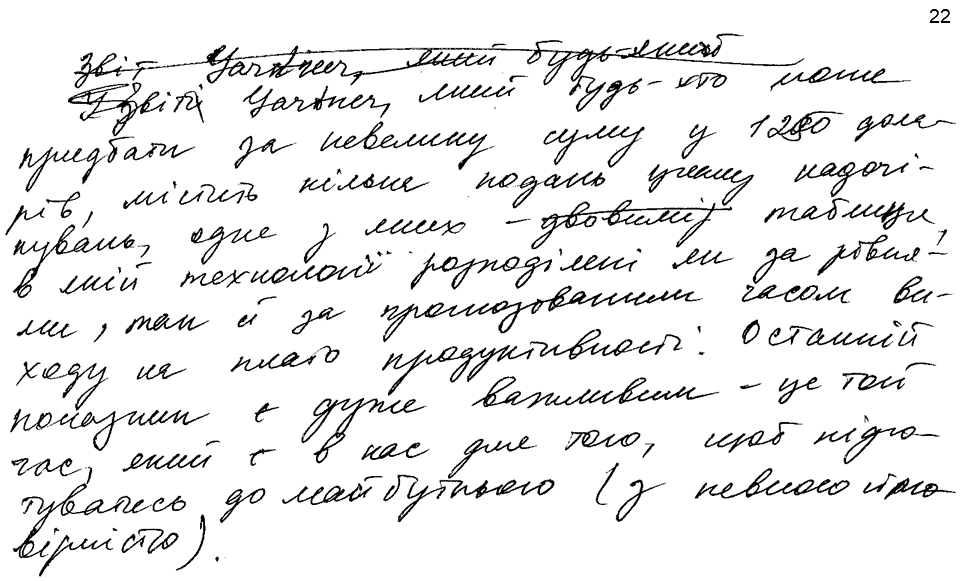 22
Звіт Gartner, який будь-який
У Звіті Gartner, який будь-хто може
придбати за невелику суму у 1250 дола-
рів, містить кілька подань циклу надочі-
кувань, одне з яких – двовимір таблиця,
в якій технології розподілені як за рівня-
ми, так й за прогнозованим часом ви-
ходу на плато продуктивності. Останній
показник є дуже важливим – це той
час, який є в нас для того, щоб підго-
туватись до майбутнього (з певною ймо-
вірністю).